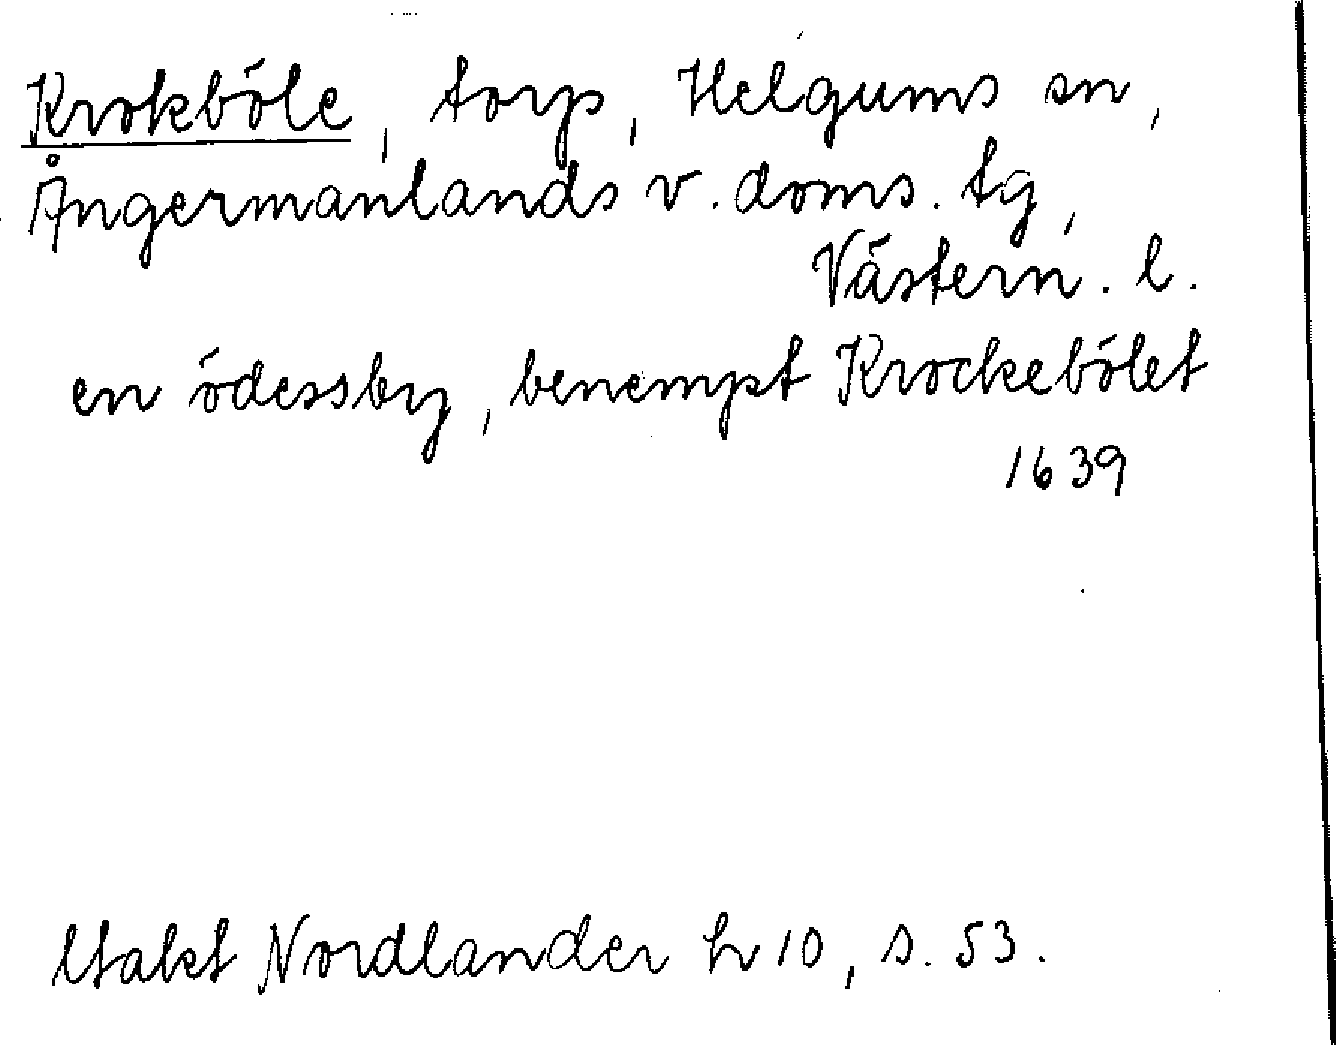 Krokböle, torp, Helgums sn,
Ångermanlands v. doms. tg,
Västern. l.
en ödessby, benempt Krockebölet
1639
Utakt Nordlander h 10, s. 53.